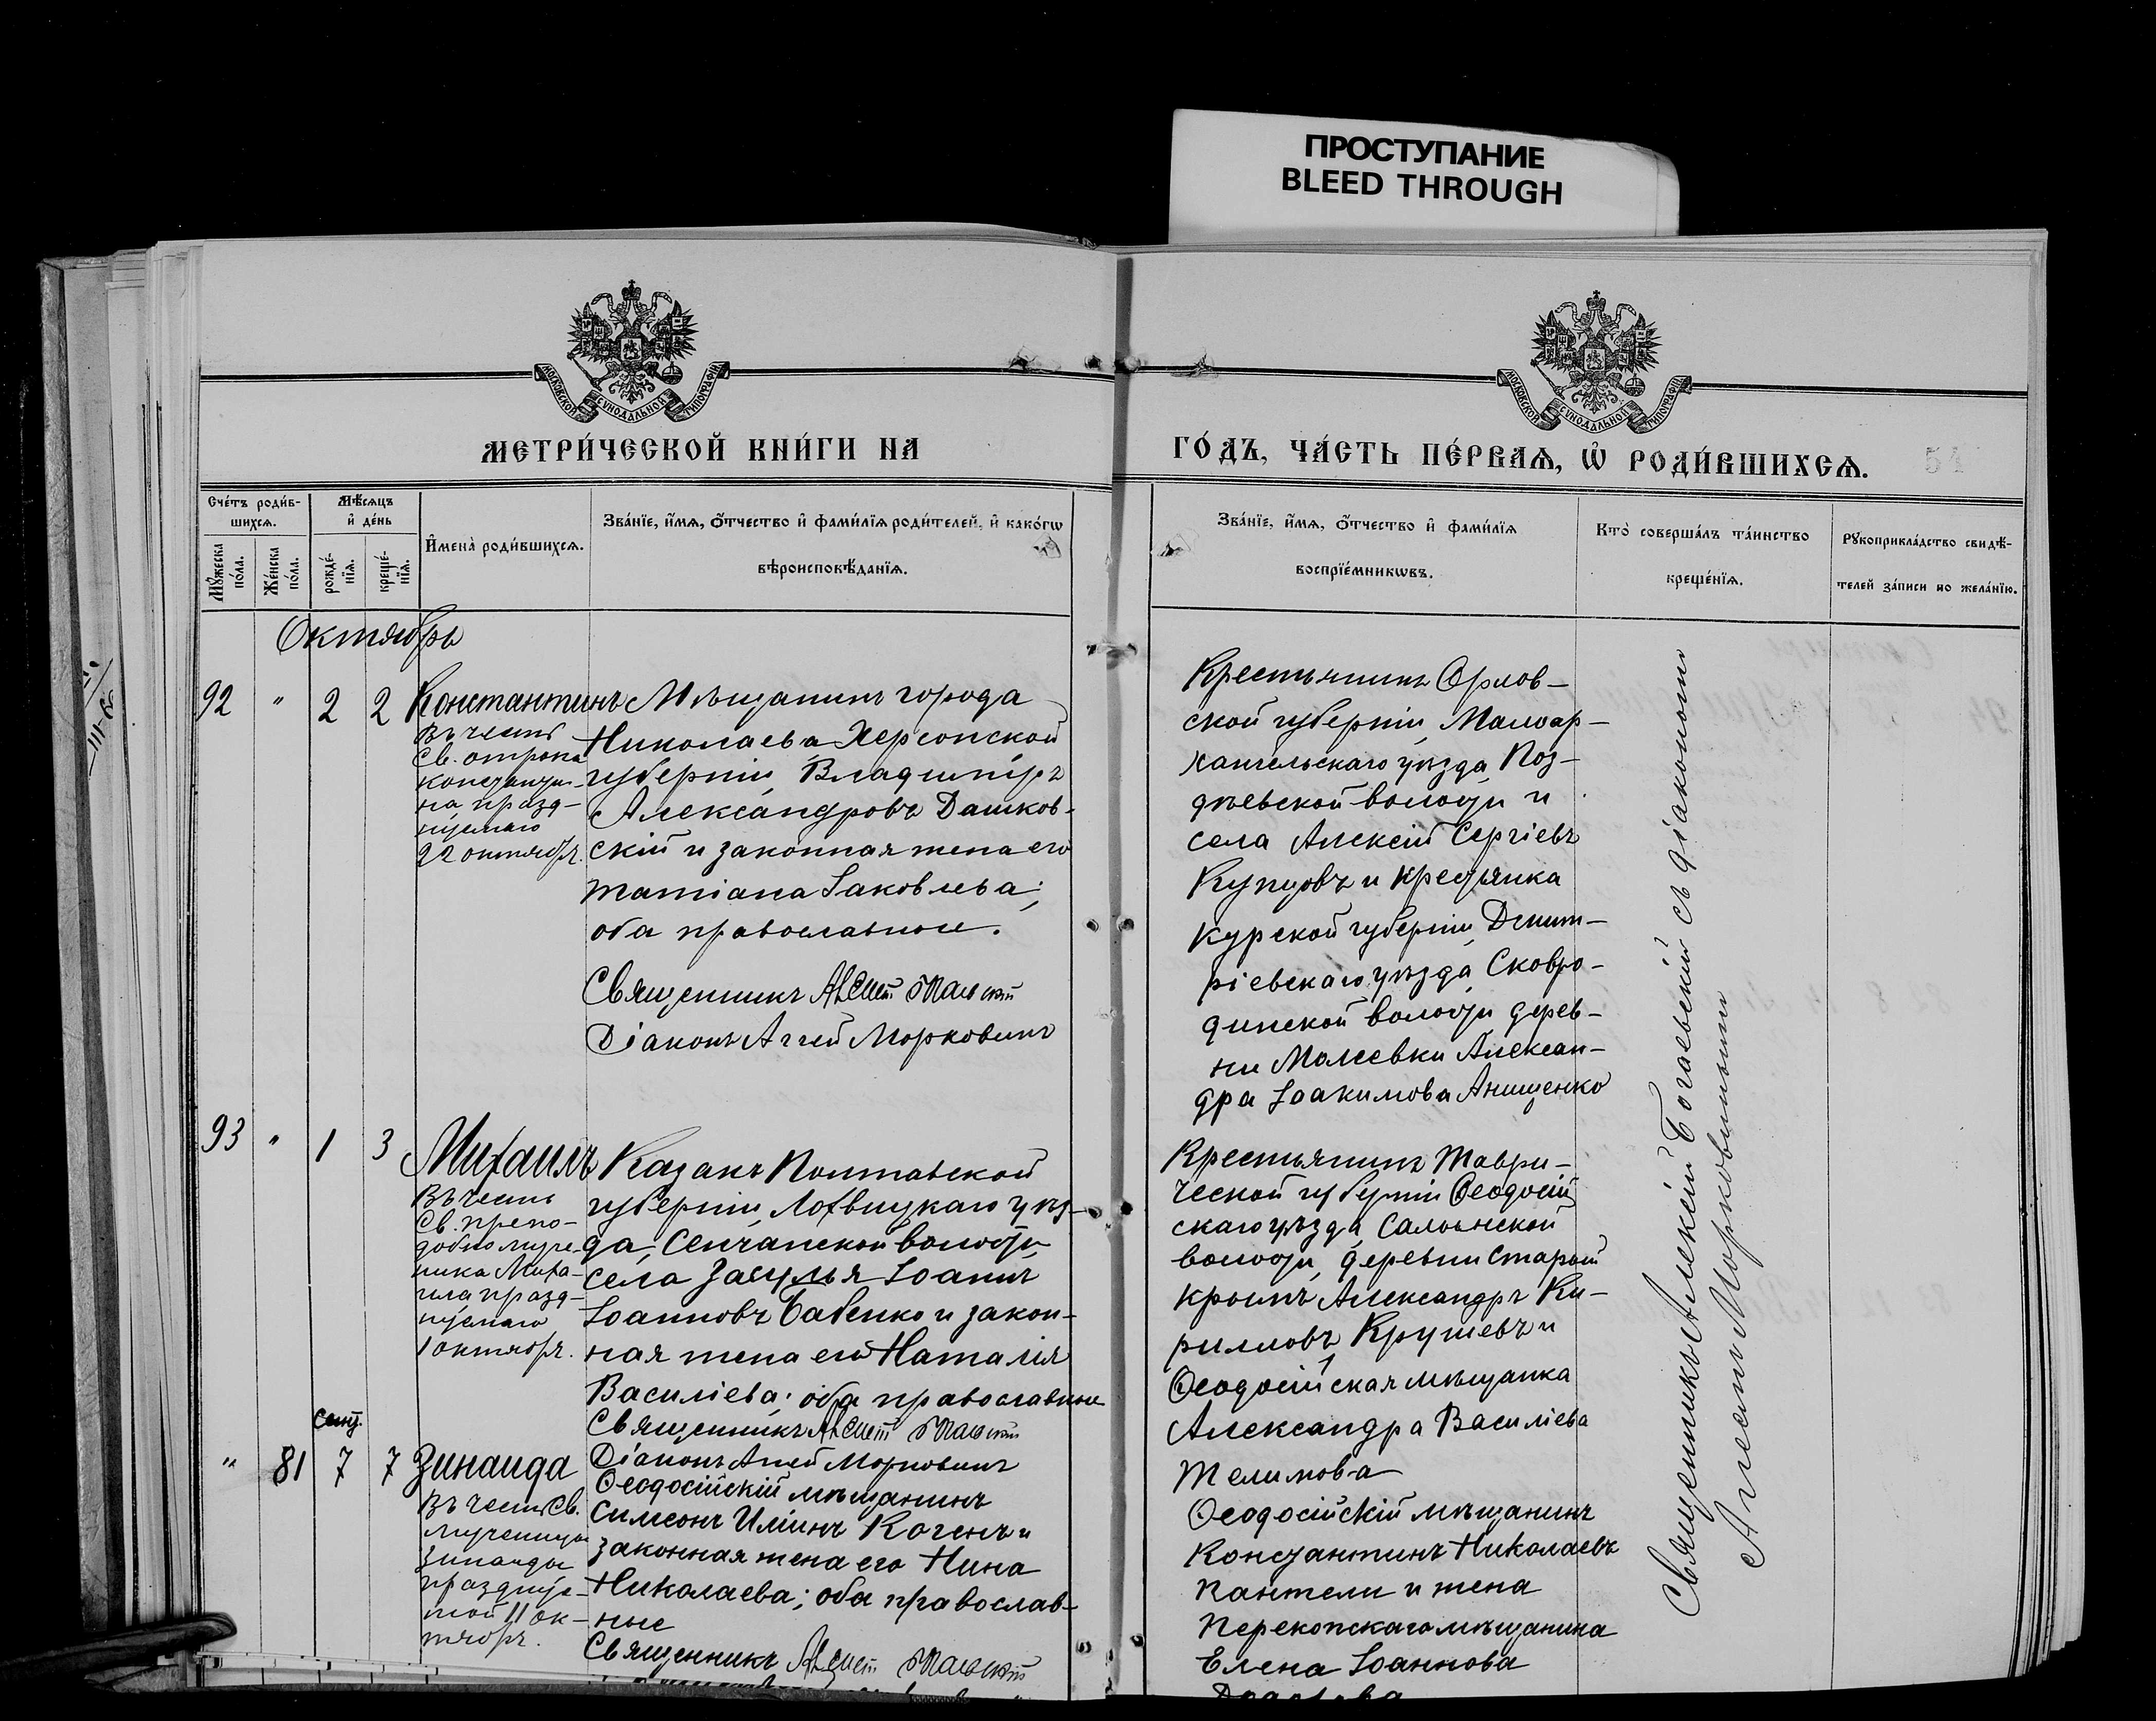 ПРОСТУПАНИЕ
BLEED THROUGH
МОСКОВСКОЙ СѴНОДАЛЬНОЙ ТИПОГРАФІИ
МОСКОВСКОЙ СѴНОДАЛЬНОЙ ТИПОГРАФІИ
МЕТРИ́ЧЕСКОЙ КНИ́ГИ НА
ГО́ДЪ, ЧА́СТЬ ПЕ́РВАѦ, Ѡ҆ РОДИ́ВШИХСѦ.
54
Сче́тъ роди́в-
шихсѧ.
Мꙋ́жеска
по́ла.
Же́нска
по́ла.
Мѣ́сѧцъ
и҆ де́нь
рожде́-
нїѧ.
креще́-
нїѧ.
И҆мена̀ роди́вшихсѧ.
Зва́нїе, и҆́мѧ, ѻ҆́тчество и҆ фами́лїѧ роди́телей, и҆ како́гѡ
вѣроисповѣ́данїѧ.
Зва́нїе, и҆́мѧ, ѻ҆́тчество и҆ фами́лїѧ
воспрїе́мникѡвъ.
Кто̀ соверша́лъ та́инство
креще́нїѧ.
Рꙋкоприкла́дство свидѣ́-
телей за́писи по жела́нїю.
Октябрь
92 " 2 2
Константинъ
Въ честь
Св. отрока
Константи-
на празд-
нуемаго
22 октября.
Мѣщанинъ города
Николаева Херсонской
губерніи, Владиміръ
Александровъ Дашков-
скій и законная жена его
Татіана Іаковлева;
оба православные.
Священникъ
Діаконъ Аггей Морковинъ
Крестьянинъ Орлов-
ской губерніи, Малоар-
хангельскаго уѣзда, Поз-
дѣевской волости и
села Алексій Сергіевъ
Купцовъ и крестьянка
Курской губерніи, Дмит-
ріевскаго уѣзда, Сковро-
динской волости, дерев-
ни Алексан-
дра Іоакимова Анищенко
93 " 1 3
Михаилъ
Въ честь
Св. препо-
добномуче-
ника Миха-
ила, празд-
нуемаго
1 октября.
Казакъ Полтавской
губерніи, Лохвицкаго уѣз-
да, Сенчанской волости,
села Засулья Іоаннъ
Іоанновъ Бабенко и закон-
ная жена его Наталія
Василіева; оба православные
Священникъ
Діаконъ Аггей Морковинъ
Крестьянинъ Таври-
ческой губерніи Ѳеодосій
скаго уѣзда, Салынской
волости, деревни Старый
Крымъ Александръ Ки-
рилловъ Крушевъ и
Ѳеодосійская мѣщанка
Александра Василіева
Телимова
Сент.
" 81 7 7
Зинаида
Въ честь Св.
мученицы
Зинаиды
празднуе-
мой 11 ок-
тября.
Ѳеодосійскій мѣщанинъ
Симеонъ Иліинъ Когенъ и
законная жена его Нина
Николаева; оба православ-
ные
Священникъ
Ѳеодосійскій мѣщанинъ
Константинъ Николаевъ
Пантели и жена
Перекопскаго мѣщанина
Елена Іоаннова
Священникъ Алексій Богаевскій съ діакономъ
Аггеемъ Морковинымъ